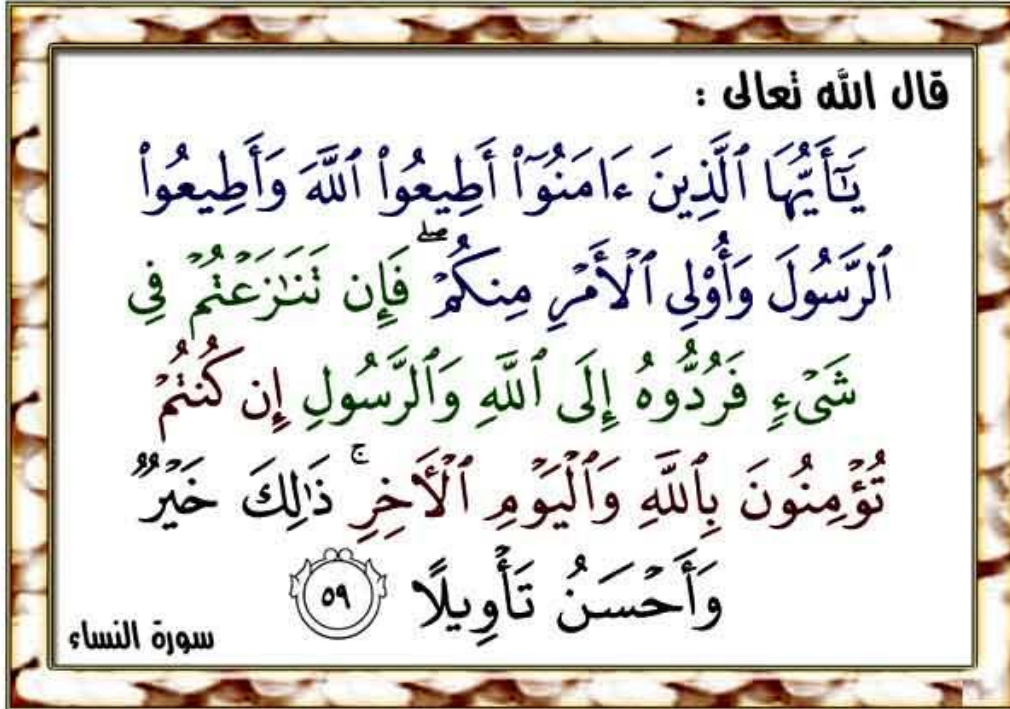 قال الله تعالى :
يَـٰٓأَيُّهَا ٱلَّذِينَ ءَامَنُوٓا۟ أَطِيعُوا۟ ٱللَّهَ وَأَطِيعُوا۟
ٱلرَّسُولَ وَأُو۟لِى ٱلْأَمْرِ مِنكُمْ ۖ فَإِن تَنَـٰزَعْتُمْ فِى
شَىْءٍ فَرُدُّوهُ إِلَى ٱللَّهِ وَٱلرَّسُولِ إِن كُنتُمْ
تُؤْمِنُونَ بِٱللَّهِ وَٱلْيَوْمِ ٱلْـَٔاخِرِ ۚ ذَٰلِكَ خَيْرٌ
وَأَحْسَنُ تَأْوِيلًا ٥٩
سورة النساء